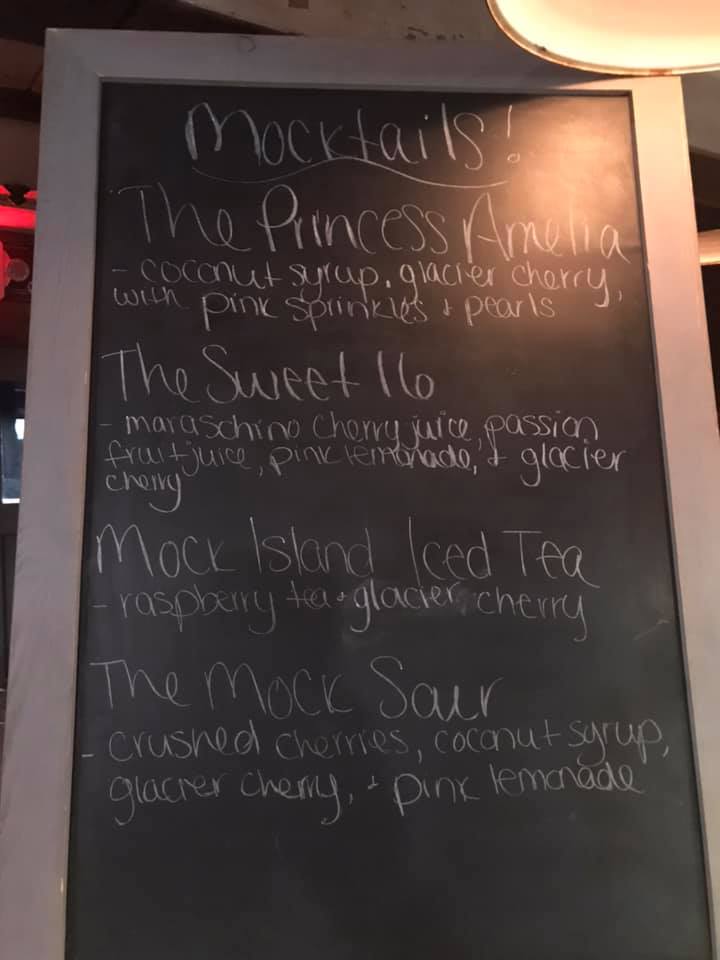 Mocktails!
The Princess Amelia
- coconut syrup, glacier cherry,
with pink sprinkles + pearls
The Sweet 16
- maraschino cherry juice, passion
fruit juice, pink lemonade, + glacier
cherry
Mock Island Iced Tea
- raspberry tea + glacier cherry
The Mock Sour
- crushed cherries, coconut syrup,
glacier cherry, + pink lemonade